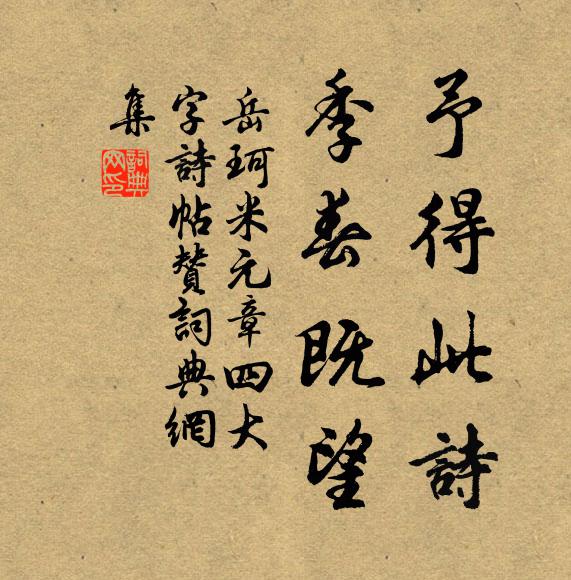 予得此詩
季春既望
岳珂米元章四大
字詩帖贊詞典網
集
詞典
網印